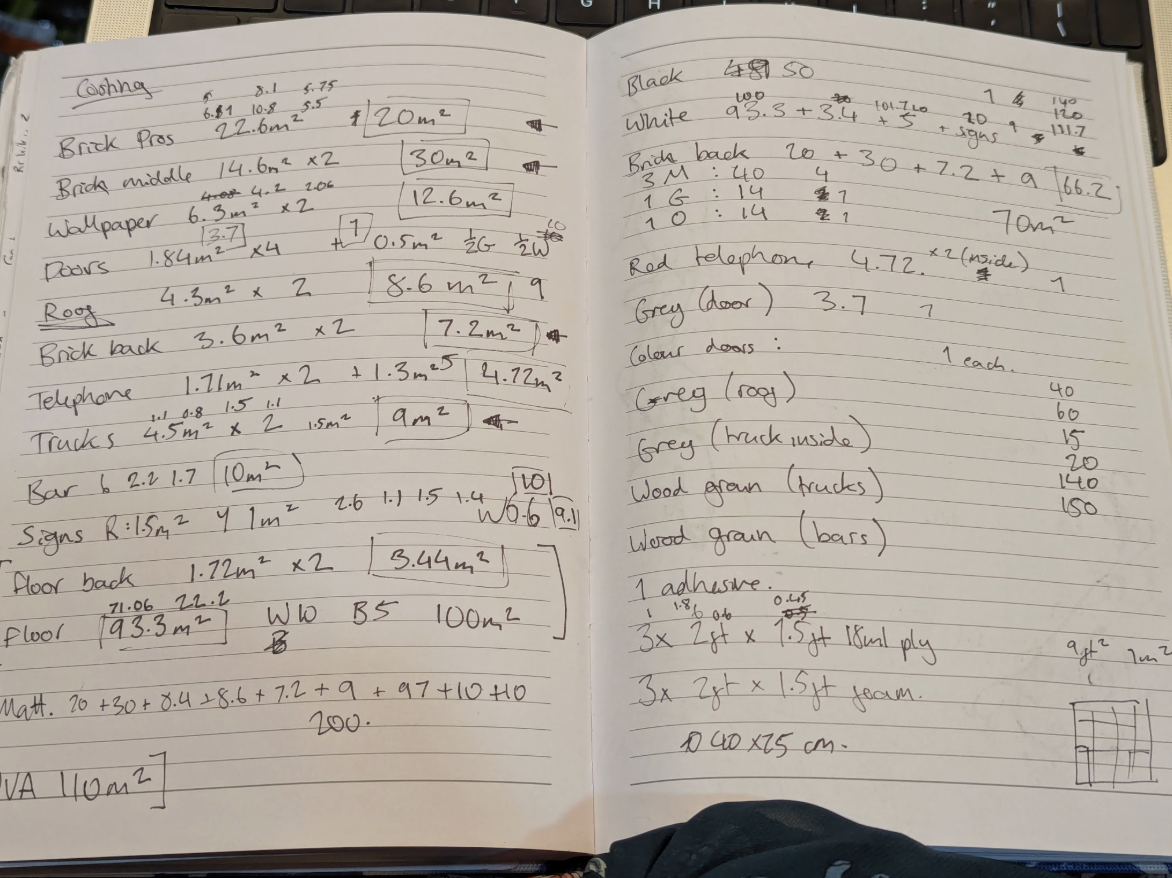 Costing
5 8.1 5.75
6.81 10.8 5.5
Brick Pros 22.6m² 20m²
Brick middle 14.6m² x2 30m²
4.2 2.06
Wallpaper 6.3m² x2 12.6m²
3.7
Doors 1.84m² x4 + 1 0.5m² ½G ½W
Roof 4.3m² x 2 8.6m² 9
Brick back 3.6m² x2 7.2m²
Telephone 1.71m² x2 + 1.3m² 5 4.72m²
1.1 0.8 1.5 1.1
Trucks 4.5m² x 2 1.5m² 9m²
Bar 6 2.2 1.7 10m²
Signs R:1.5m² Y 1m² 2.6 1.1 1.5 1.4 W0.6 9.1
10
floor back 1.72m² x2 3.44m²
71.06 22.2
floor 93.3m² W10 B5 100m²
Matt. 20 +30 + 8.4 + 8.6 + 7.2 + 9 + 97 +10 +10
200.
VA 110m²
Black 50
100 101.7
White 93.3 + 3.4 + 5 + signs 9
20
1
140
120
111.7
Brick back 20 + 30 + 7.2 + 9 66.2
3 M : 40 4
1 G : 14 1
1 O : 14 1
70m²
Red telephone 4.72. x2 (inside) 1
Grey (door) 3.7 1
Colour doors : 1 each.
Grey (roof) 40
60
Grey (truck inside) 15
20
Wood grain (trucks) 140
150
Wood grain (bars)
1 adhesive.
1 1.86 0.6 0.45
3x 2ft x 1.5ft 18ml ply
9ft² 1m²
3x 2ft x 1.5ft foam.
40 x25 cm.